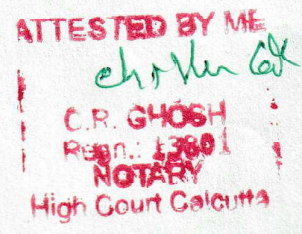 ATTESTED BY ME
C.R. GHOSH
Regn.: 13801
NOTARY
High Court Calcutta